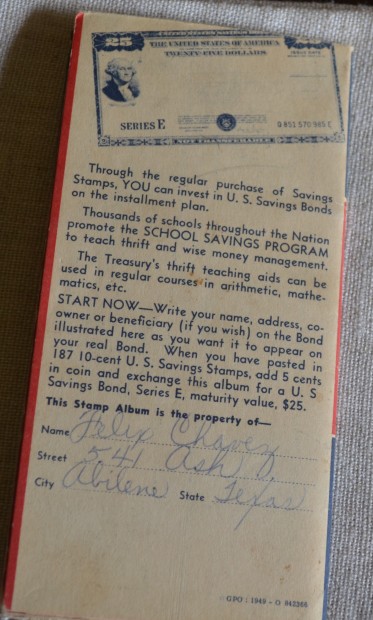 25
THE UNITED STATES OF AMERICA
TWENTY-FIVE DOLLARS
SERIES E
Q 851 570 965 E
NOT TRANSFERABLE
Through the regular purchase of Savings
Stamps, YOU can invest in U. S. Savings Bonds
on the installment plan.
Thousands of schools throughout the Nation
promote the SCHOOL SAVINGS PROGRAM
to teach thrift and wise money management.
The Treasury's thrift teaching aids can be
used in regular courses in arithmetic, mathe-
matics, etc.
START NOW—Write your name, address, co-
owner or beneficiary (if you wish) on the Bond
illustrated here as you want it to appear on
your real Bond. When you have pasted in
187 10-cent U. S. Savings Stamps, add 5 cents
in coin and exchange this album for a U. S
Savings Bond, Series E, maturity value, $25.
This Stamp Album is the property of—
Name Felix Chavez
Street 541 Ash
City Abilene State Texas
GPO : 1949 - O 842366